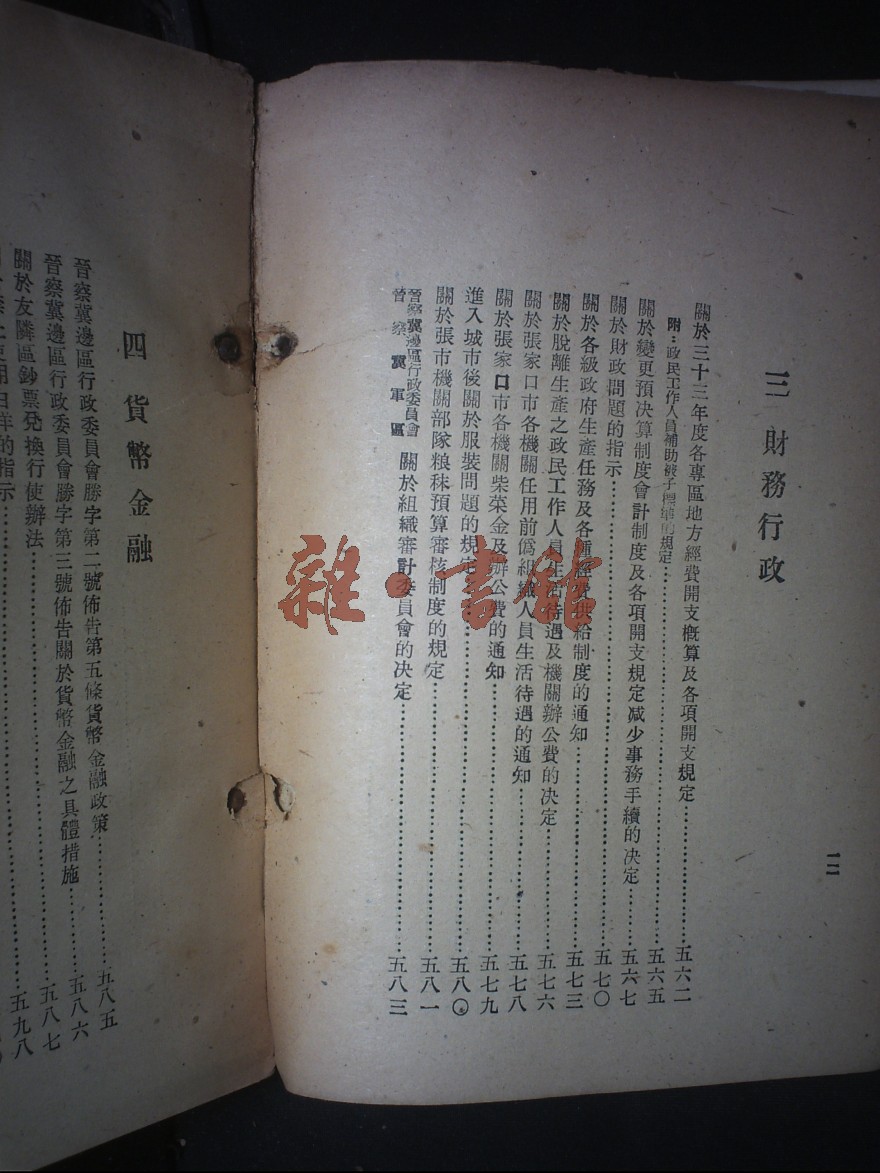 三 財務行政
關於三十三年度各專區地方經費開支概算及各項開支規定…五六二
附：政民工作人員補助被子標準的規定…五六五
關於變更預決算制度會計制度及各項開支規定减少事務手續的决定…五六七
關於財政問題的指示…五七〇
關於各級政府生產任務及各種經費供給制度的通知…五七三
關於脫離生產之政民工作人員生活待遇及機關辦公費的决定…五七六
關於張家口市各機關任用前僞組織人員生活待遇的通知…五七八
關於張家口市各機關柴菜金及辦公費的通知…五七九
進入城市後關於服裝問題的規定…五八〇
關於張市機關部隊粮秣預算審核制度的規定…五八一
晉察冀邊區行政委員會
晉察冀軍區
關於組織審計委員會的决定…五八三
一二
四 貨幣金融
晉察冀邊區行政委員會勝字第二號佈告第五條貨幣金融政策…五八五
晉察冀邊區行政委員會勝字第三號佈告關於貨幣金融之具體措施…五八六
關於友隣區鈔票兌換行使辦法…五八七
的指示…五九八
雜·書館